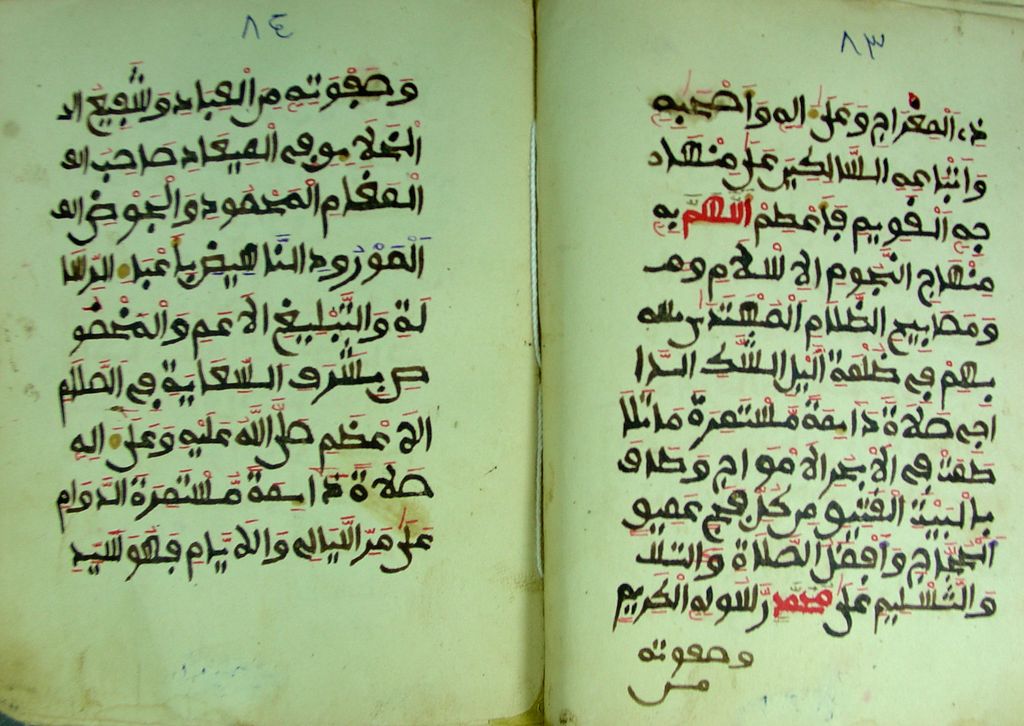 ٨٣
ذي المعراج وعلى اله واصحابه
واتباعه السالكين على منهاد
جه القويم فاعظم اللهم به
منهاج النجوم الاسلام
ومصابيح الظلام المهتدى
بهم في ظلمة اليل الشك الدا
اجي صلاة دائمة مستمرة ما تلا
طمت في الابحر الامواج وطاف
بالبيت العتيق من كل فج عميق
الحجاج وافضل الصلاة والتسل
والتسليم على محمد رسوله الكريم
وصفوته
من
٨٤
وصفوته من العباد وشفيع ال
الخلايق في الميعاد صاحب ال
المقام المحمود والحوض ال
المورود الناهض باعباء الرسا
لة والتبليغ الاعم والمخصو
ص بشرف السعاية في
الاعظم صلى الله عليه وعلى اله
صلاة دائمة مستمرة الدوام
على مر الليالي والايام فهو سيد